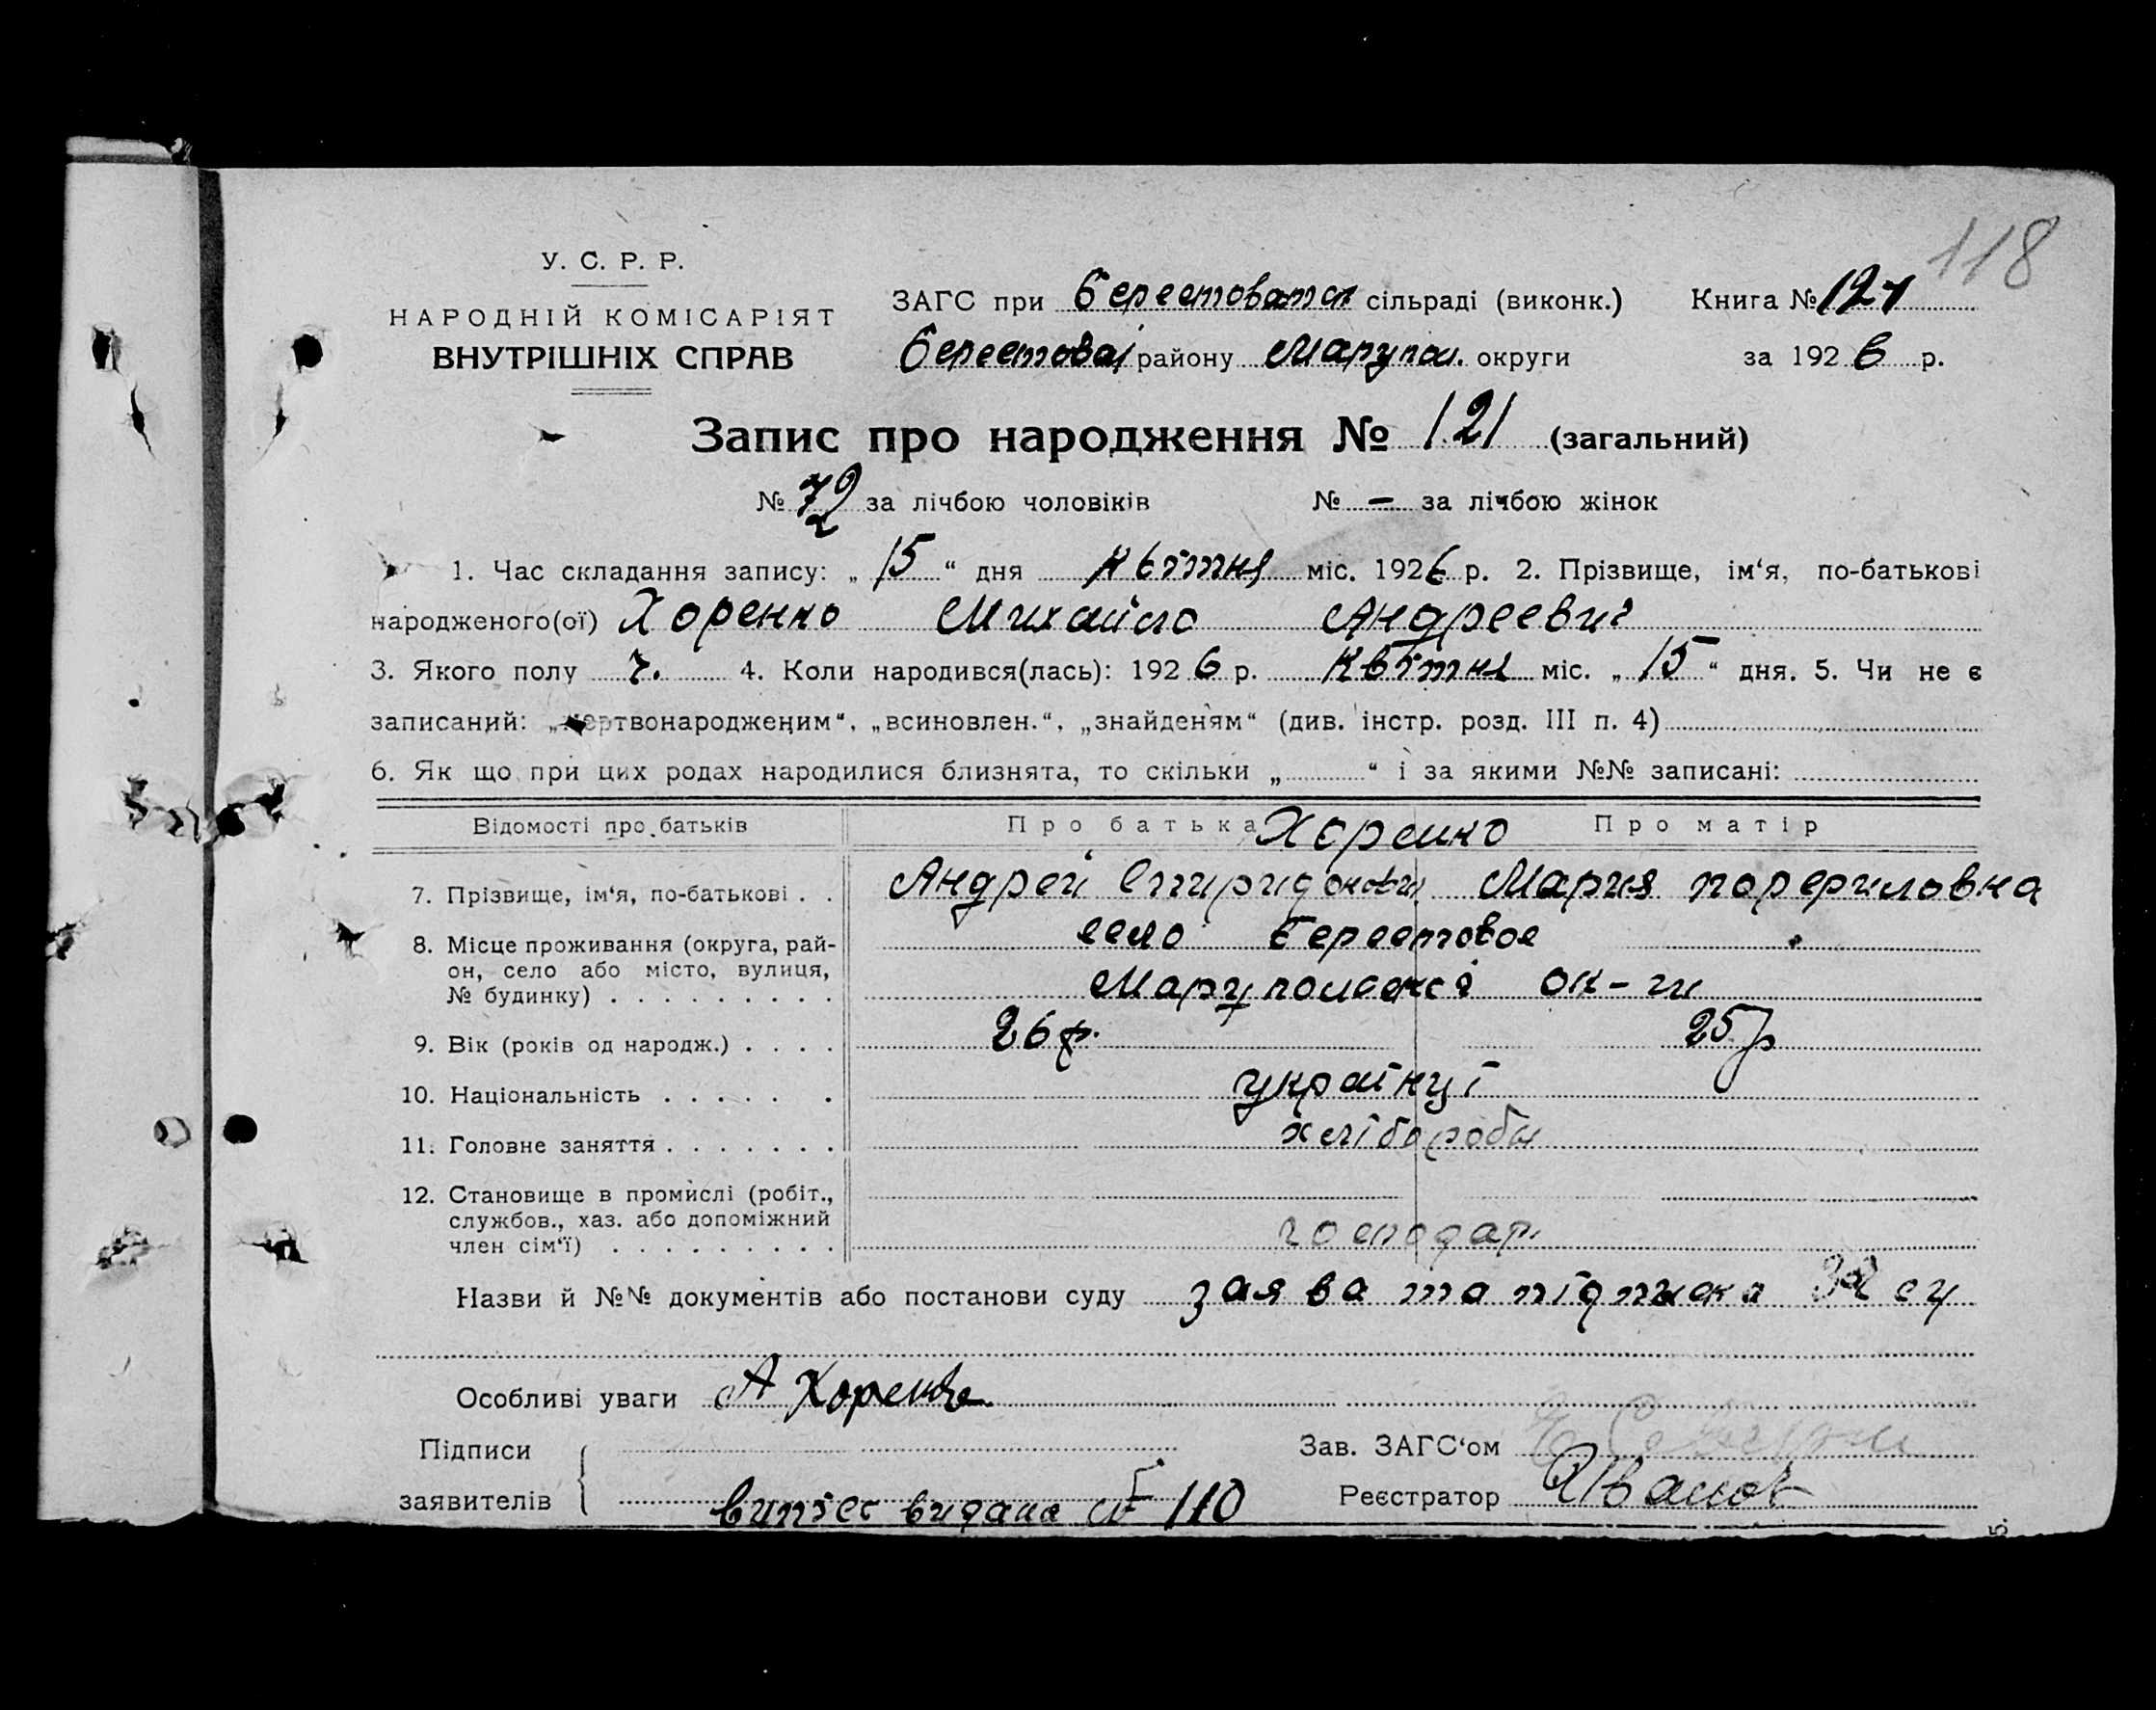 118
У. С. Р. Р.
НАРОДНІЙ КОМІСАРІЯТ
ВНУТРІШНІХ СПРАВ
ЗАГС при сільраді (виконк.) Книга №
району Марупол. округи за 1926 р.
Запис про народження № 121 (загальний)
№ 72 за лічбою чоловіків № – за лічбою жінок
1. Час складання запису: „15“ дня квітня міс. 1926 р. 2. Прізвище, ім‘я, по-батькові
народженого(ої) Хоренко Михайло Андреевич
3. Якого полу ч. 4. Коли народився(лась): 1926 р. квітня міс. „15“ дня. 5. Чи не є
записаний: „мертвонародженим“, „всиновлен.“, „знайденям“ (див. інстр. розд. III п. 4)
6. Як що при цих родах народилися близнята, то скільки „ “ і за якими №№ записані:
Відомості про батьків Про батька Хоренко Про матір
7. Прізвище, ім‘я, по-батькові . . Андрей Спиридонович Мария
8. Місце проживання (округа, рай-
он, село або місто, вулиця,
№ будинку) . . . . . . . . .
село Берестовое
ок-ги
9. Вік (років од народж.) . . . . 26 р. 25 р
10. Національність . . . . . . українці
11. Головне заняття . . . . . . . хлібороби
12. Становище в промислі (робіт.,
службов., хаз. або допоміжний
член сім‘ї) . . . . . . . . .
господар.
Назви й №№ документів або постанови суду заява та підписка
Особливі уваги А Хоренко
Підписи
заявителів
Зав. ЗАГС‘ом
Реєстратор Иванов
видана № 110
5.